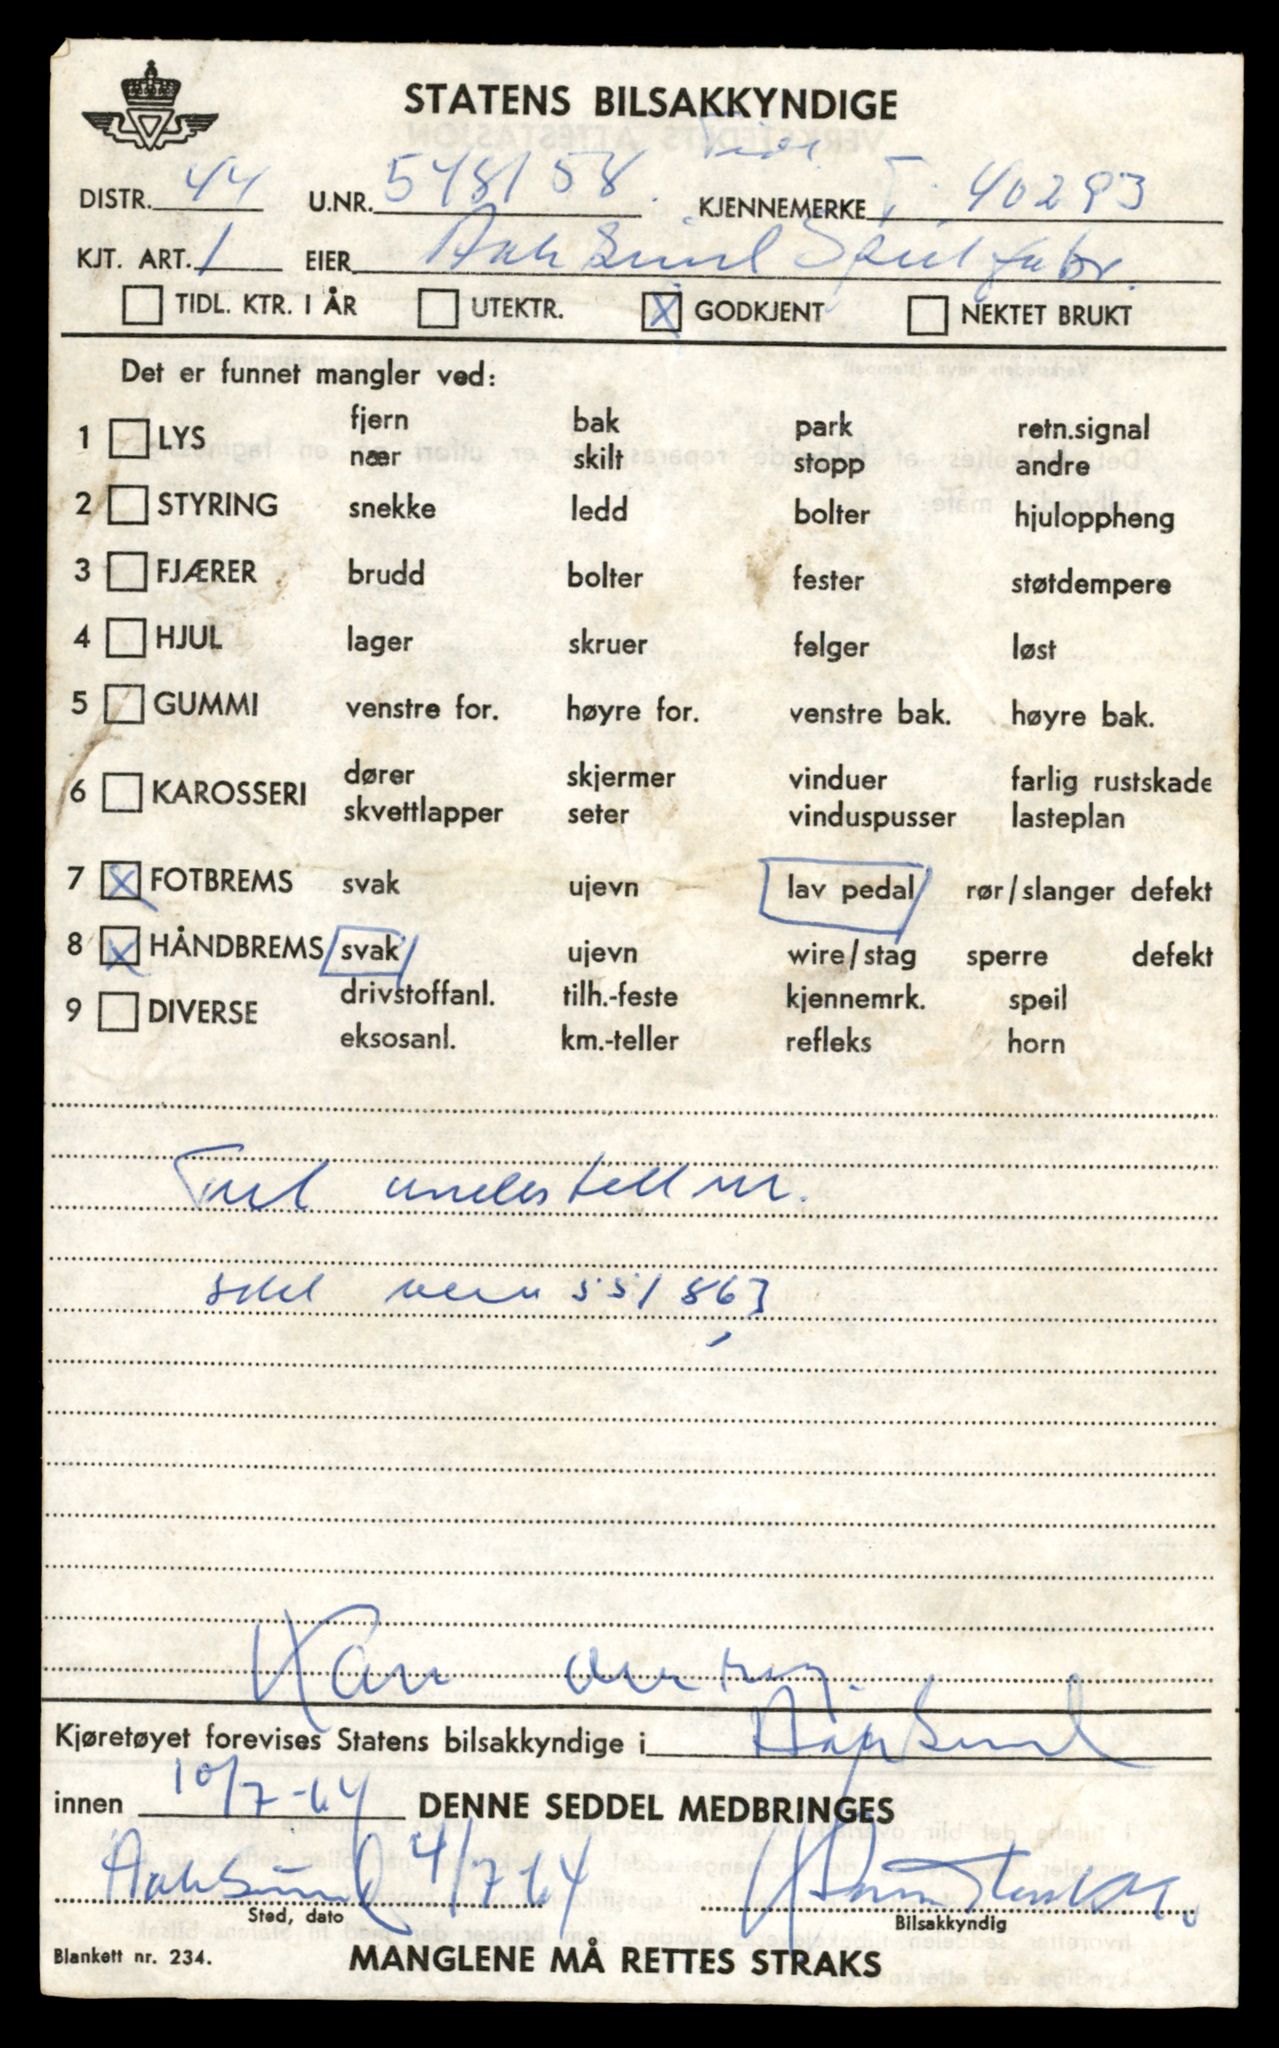 STATENS BILSAKKYNDIGE
DISTR. 44 U.NR. 548158. KJENNEMERKE T. 40293
KJT. ART. 1 EIER
TIDL. KTR. I ÅR UTEKTR. X GODKJENT NEKTET BRUKT
Det er funnet mangler ved:
1 LYS fjern bak park retn.signal
nær skilt stopp andre
2 STYRING snekke ledd bolter hjuloppheng
3 FJÆRER brudd bolter fester støtdempere
4 HJUL lager skruer felger løst
5 GUMMI venstre for. høyre for. venstre bak. høyre bak.
6 KAROSSERI dører skjermer vinduer farlig rustskade
skvettlapper seter vinduspusser lasteplan
7 X FOTBREMS svak ujevn lav pedal rør/slanger defekt
8 X HÅNDBREMS svak ujevn wire/stag sperre defekt
9 DIVERSE drivstoffanl. tilh.-feste kjennemrk. speil
eksosanl. km.-teller refleks horn
understell nr.
551863
Kjøretøyet forevises Statens bilsakkyndige i
innen 10/7-64 DENNE SEDDEL MEDBRINGES
4/7 64
Sted, dato Bilsakkyndig
Blankett nr. 234. MANGLENE MÅ RETTES STRAKS